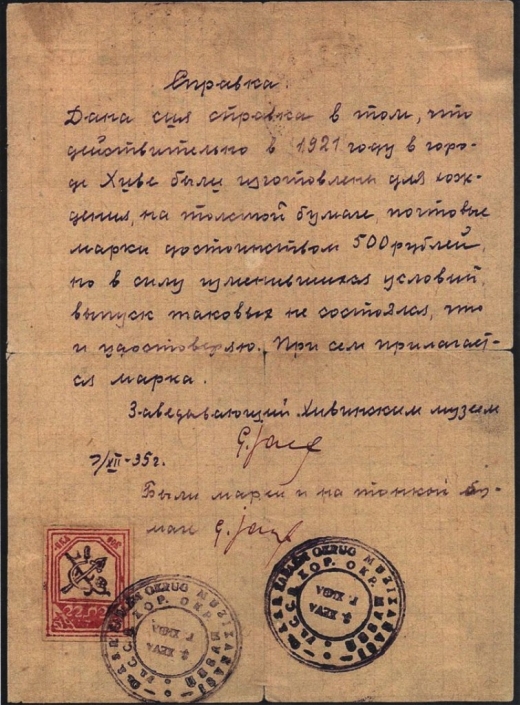 Справка.
Дана сия справка в том, что
действительно в 1921 году в горо-
де Хиве были изготовлены для хож-
дения, на толстой бумаге, почтовые
марки достоинством 500 рублей,
но в силу изменившихся условий,
выпуск таковых не состоялся, что
и удостоверяю. При сем прилагает-
ся марка.
Заведавающий Хивинским музеем
7/XII-35г.
Были марки и на тонкой бу-
маге
OKRUG MUZIXANASЬ
ХОР. ОКР. МУЗЕЙ
XEVA
Г. ХИВА